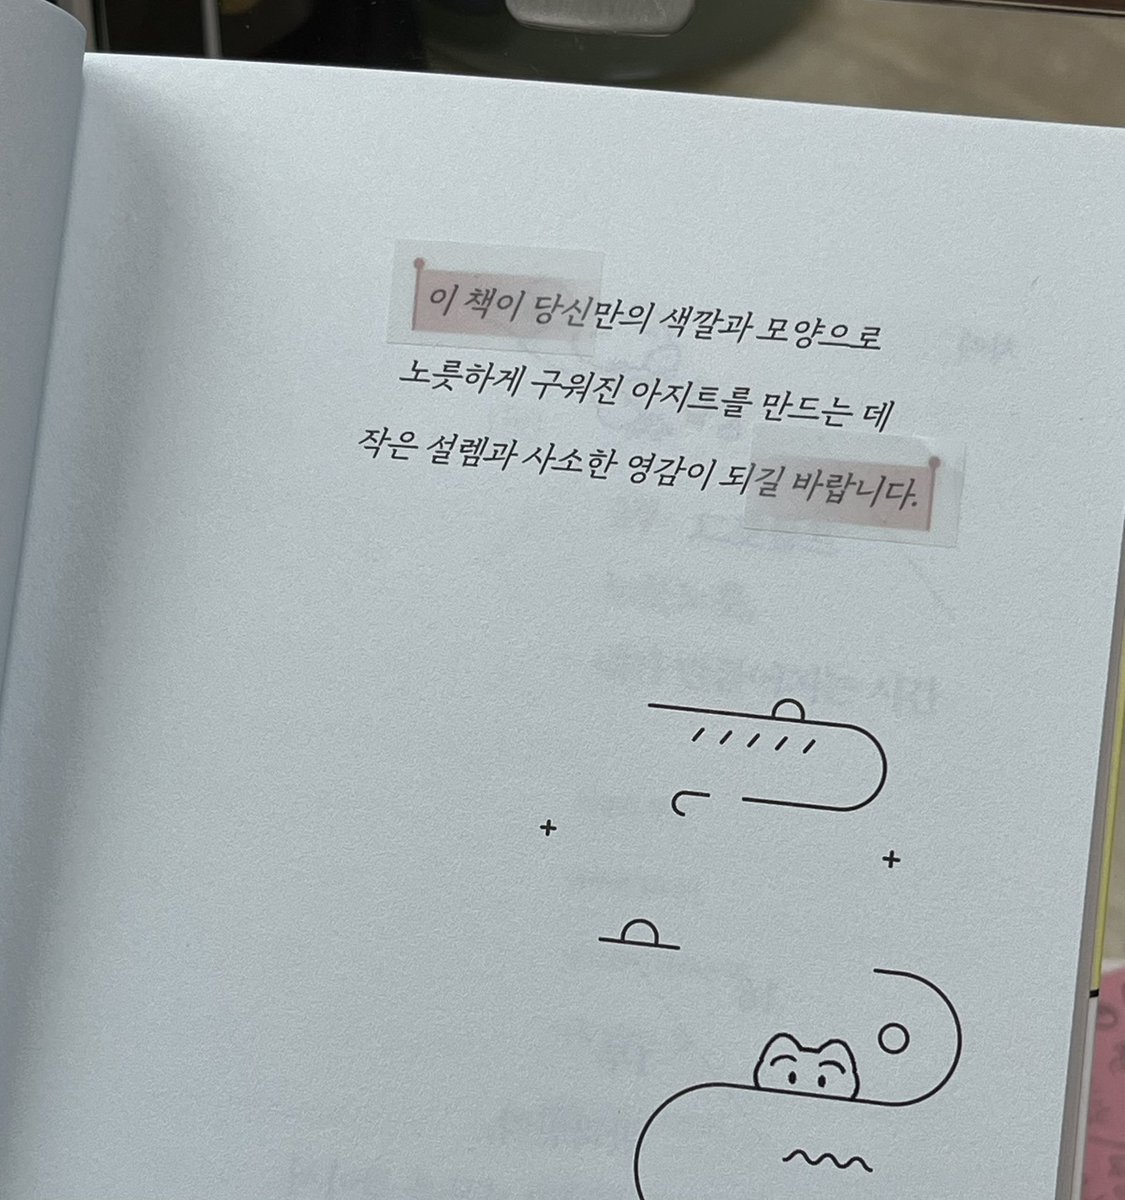 이 책이 당신만의 색깔과 모양으로
노릇하게 구워진 아지트를 만드는 데
작은 설렘과 사소한 영감이 되길 바랍니다.